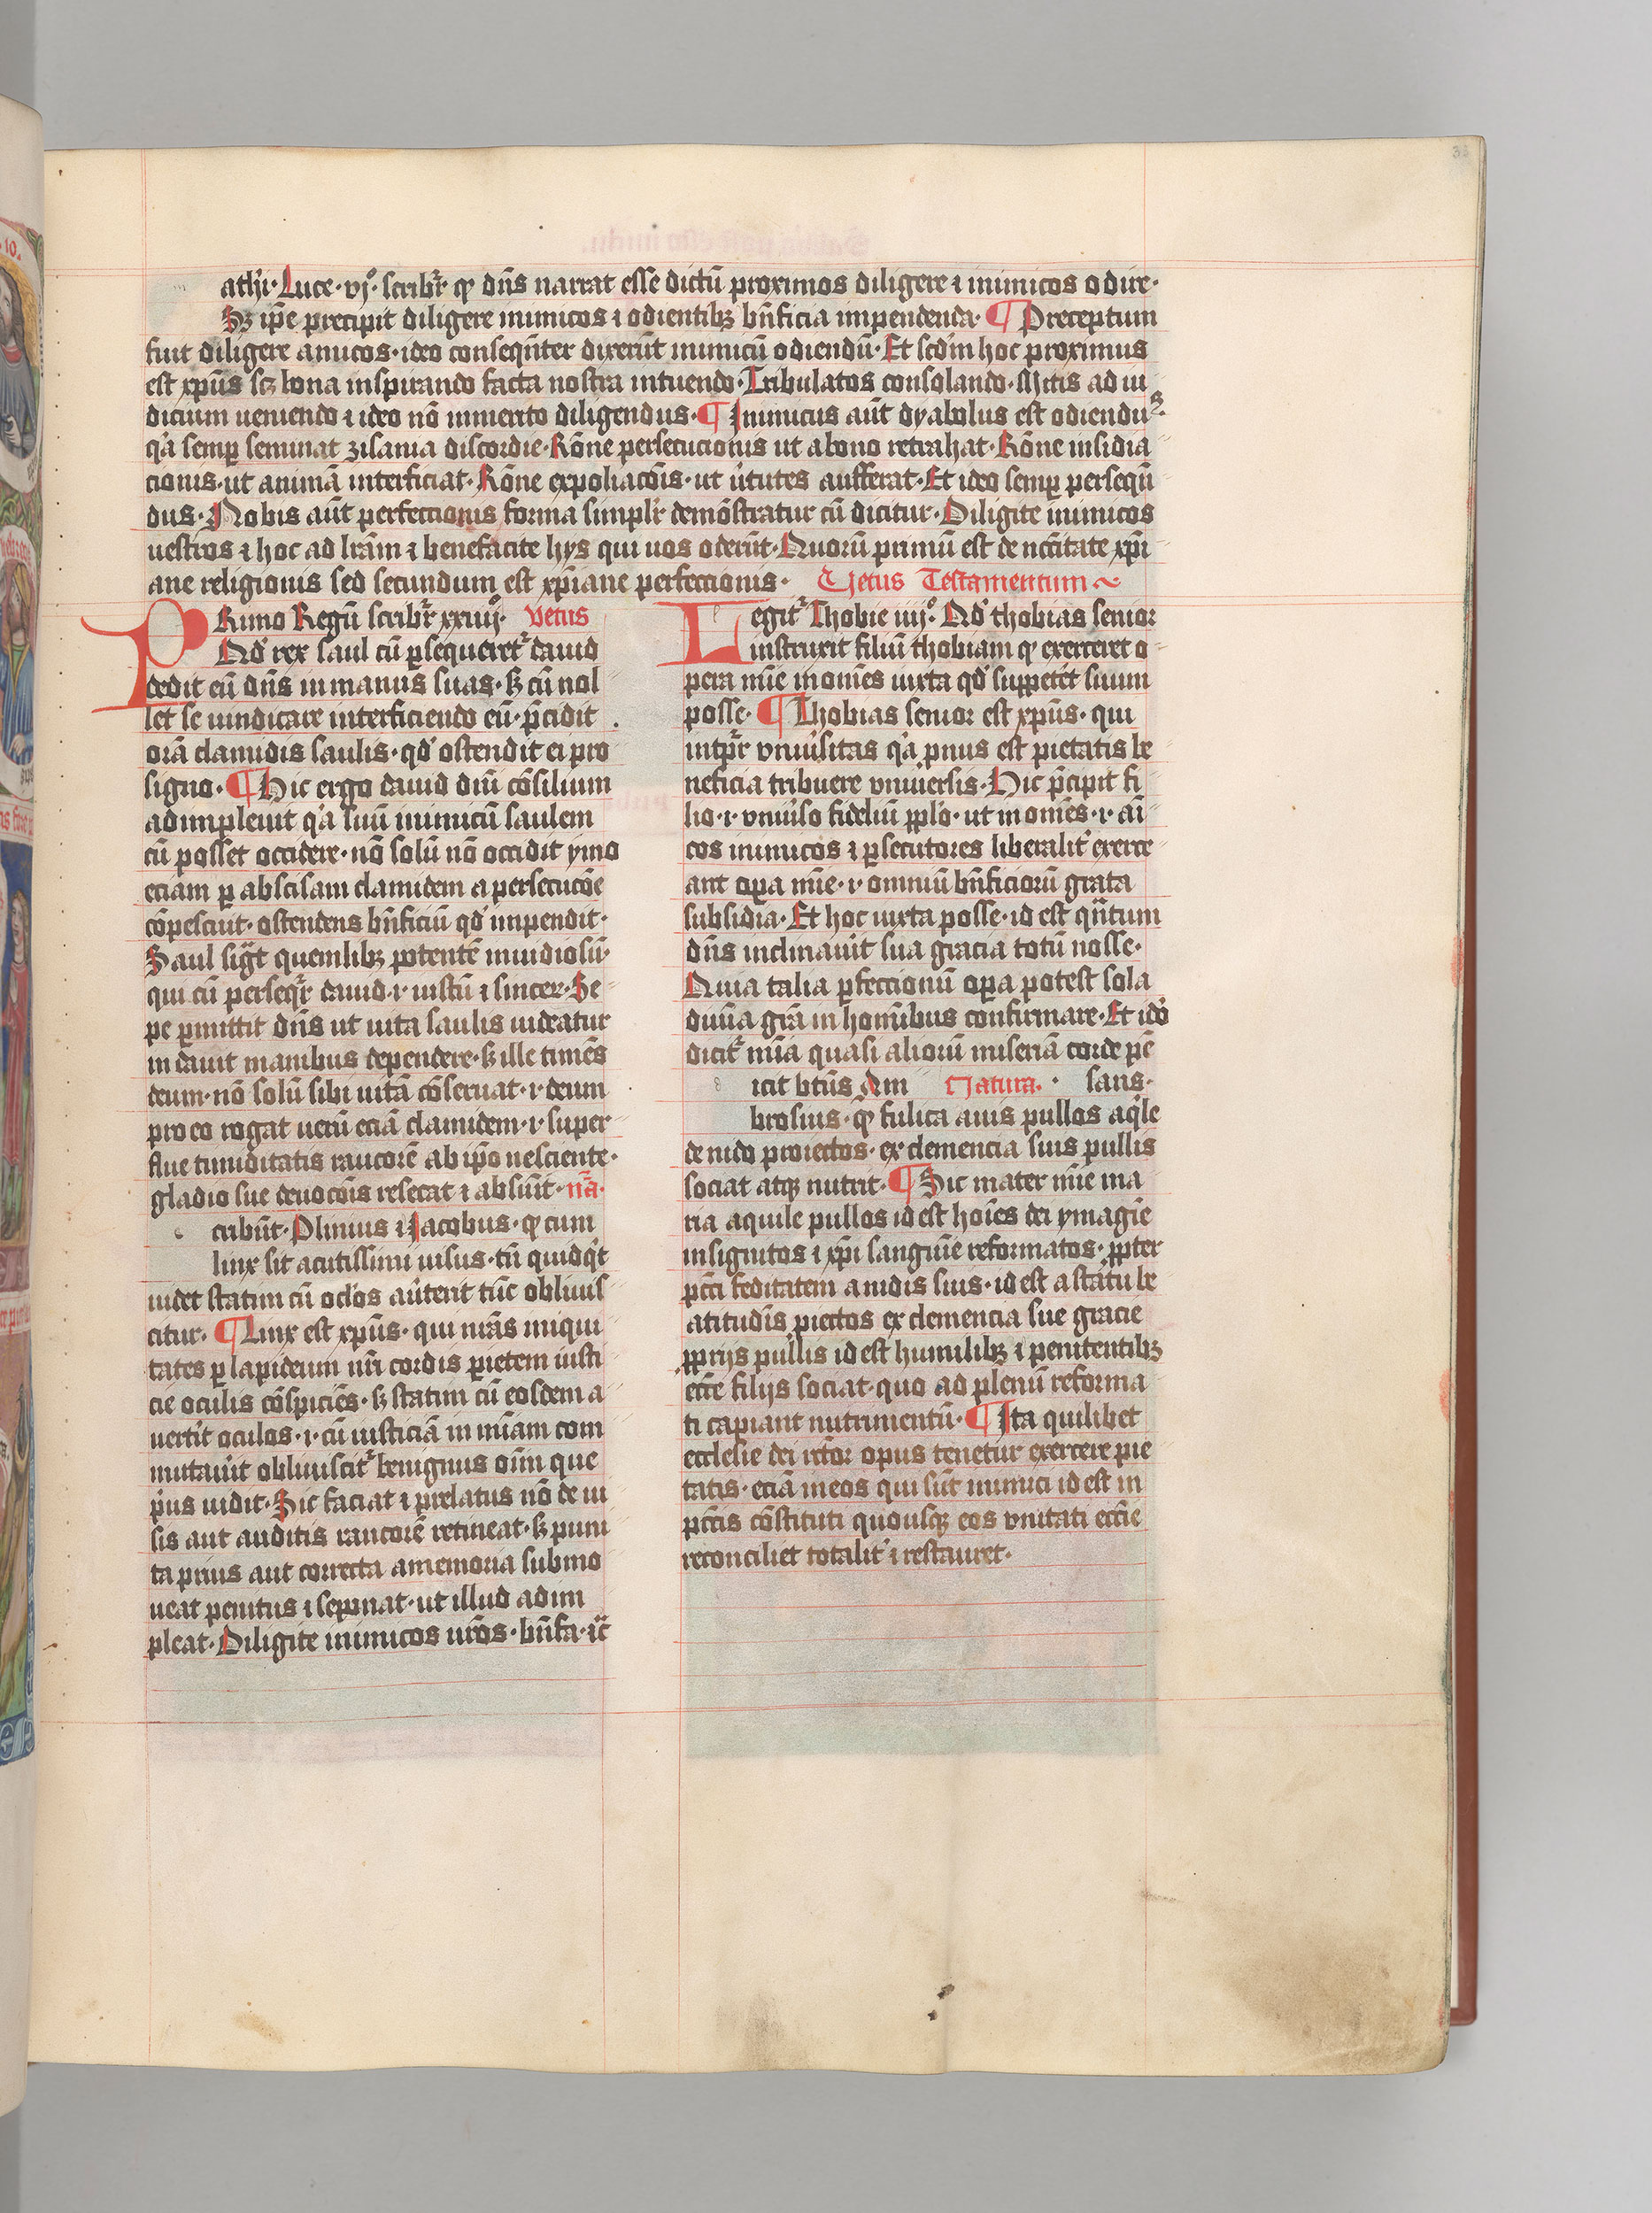 athi · Luce · vj° · scribr̄ qꝫ dn̄s narrat esse dictū proximos diligere ⁊ inimicos odire ·
Sꝫ ip̄e precipit diligere inimicos ⁊ odientibꝫ bn̄ficia impendenda · ¶ Preceptum
fuit diligere amicos · ideo conseqn̄ter dixerūt inimicū odiendū · Et scd̄m hoc proximus
est xp̄us scꝫ bona inspirando facta nostra intuendo · Tribulatos consolando · Mitis ad iu
dicium ueniendo ⁊ ideo nō inmerito diligendus · ¶ Inimicus aūt dyabolus est odiendus ·
q̇a semp̱ seminat zisania discordie · Rōne persecucionis ut a bono retrahat · Rōne insidia
cionis · ut animā interficiat · Rōne expoliacōis · ut u̇tutes aufferat · Et ideo semp̱ persequē
dus · Nobis aūt perfectionis forma simplr̄ demōstratur cū dicitur · Diligite inimicos
uestros ⁊ hoc ad lr̄am ⁊ benefacite hys qui uos oderūt · Quorū primū est de nccītate xp̄i
ane religionis sed secundum est xp̄iane perfectionis · Vetus Testamentum ~
PRimo Regū scribr̄ xxiiij · Vetus
Qd̓ rex saul cū p̱sequeret᷑ dauid
dedit eū dn̄s in manus suas · sꝫ cū nol
let se uindicare interficiendo eū · p̄cidit
orā clamidis saulis · qd̓ ostendit ei pro
signo · ¶ Hic ergo dauid diuī cōsilium
adimpleuit q̇a suū inimicū saulem
cū posset occidere · nō solū nō occidit ymo
eciam p̱ abscisam clamidem a persecucōe
cōpescuit · ostendens bn̄ficiū qd̓ impendit ·
Saul sigᷓt quemlibꝫ potentē inuidiosū ·
qui cū perseqr̄ dauid · i · iustū ⁊ sincer · Se
pe p̱mittit dn̄s ut uita saulis uideatur
in dauit manibus dependere · sꝫ ille timēs
deum · nō solū sibi uitā cōseruat · i · deum
pro eo rogat uerū eciā clamidem · i · super
flue timiditatis rancorē ab ip̄o nesciente ·
gladio sue deuocōis resecat ⁊ absūit · nᷓa ·
cribūt · Plinius ⁊ Jacobus · qꝫ cum
linx sit acutissimi uisus · tn̄ quidq̇t
uidet statim cū oclōs auerterit tūc obliuis
citur · ¶ Linx est xp̄us · qui nr̄as iniqui
tates p̱ lapideum nr̄i cordis p̱ietem iusti
cie oculis cōspiciēs · sꝫ statim cū eosdem a
uertit oculos · i · cū iusticiā in mīam com
mutauit obliuiscit᷑ benignus oīm que
ṗus uidit · Sic faciat ⁊ prelatus nō de ui
sis aut auditis rancorē retineat · sꝫ puni
ta prius aut correcta a memoria submo
ueat penitus ⁊ sepiat · ut illud adim
pleat · Diligite inimicos ur̄os · bn̄fa · ⁊c̄
Legit᷑ Thobie iiij° · Qd̓ thobias senior
instruxit filiū thobiam qꝫ exerceret o
pera mīe in om̄es iuxta qd̓ suppetēt suum
posse · ¶ Thobias senior est xp̄us · qui
intp̄r̄ vniu̇sitas q̇a pnus est pietatis be
neficia tribuere vniuersis · Hic p̄cipit fi
lio · i · vniu̇so fideliū pplō · ut in om̄es · i · am̄i
cos inimicos ⁊ p̱secutores liberalit̓ exerce
ant op̱a mīe · i · omniū bn̄ficiorū grata
subsidia · Et hoc iuxta posse · id est qn̄tum
dn̄s inclinauit sua gracia totū nosse ·
Quia talia p̱fectionū op̱a potest sola
diuīa grā in hom̄ibus confirmare · Et idō
dicit᷑ mīa quasi aliorū miseriā corde pē
icit btūs Am Natura · sans ·
brosius · qꝫ fulica auis pullos aq̇le
de nido proiectos · ex clemencia suis pullis
sociat atqꝫ nutrit · ¶ Sic mater mīe ma
ria aquile pullos id est hoīes dei ymagīe
insignitos ⁊ xp̄i sanguīe reformatos · ꝓpter
pccī feditatem a nidis suis · id est a statu be
atitudīs piectos ex clemencia sue gracie
ꝓprijs pullis id est humilibꝫ ⁊ penitentibꝫ
ecc̄e filijs sociat · quo ad plenū reforma
ti capiant nutrimentū · ¶ Ita quilibet
ecclesie dei rc̄tor opus tenetur exercere pie
tatis · eciā in eos qui sūt inimici id est in
pccīs cōstituti quousqꝫ eos vnitati ecc̄ie
reconciliet totalit̓ ⁊ restauret ·